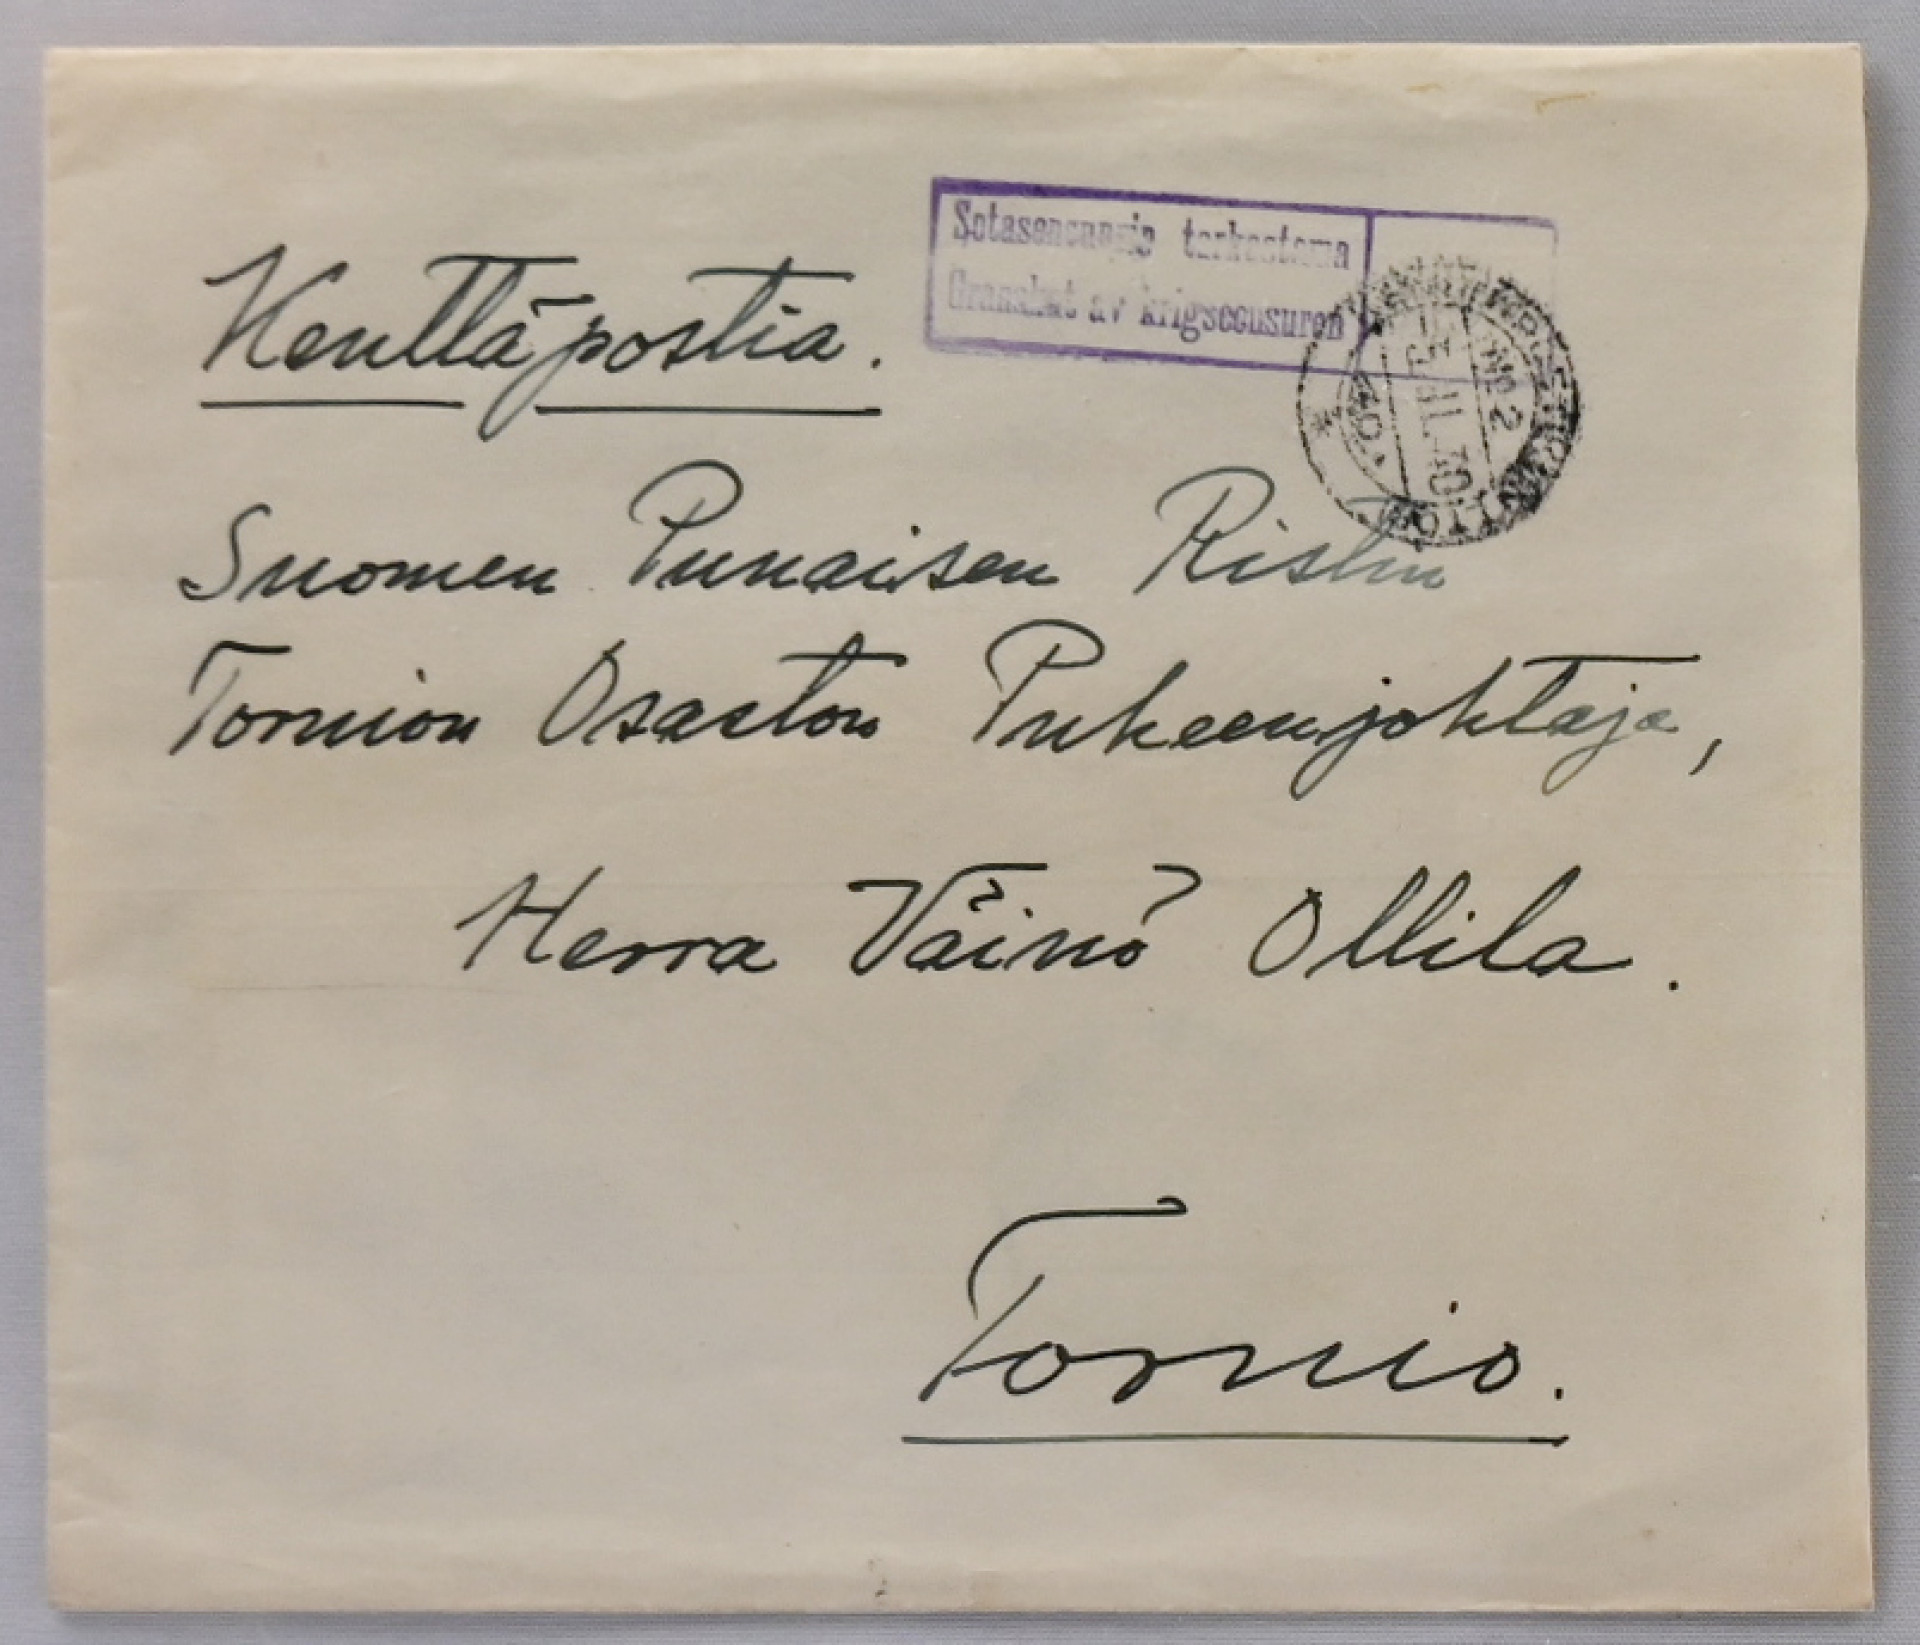 Sotasensuurin tarkastama
Granskat av krigscensuren
Kenttäpostia.
No 2
Suomen Punaisen Ristin
Tornion Osaston Puheenjohtaja,
Herra Väinö Ollila.
Tornio.